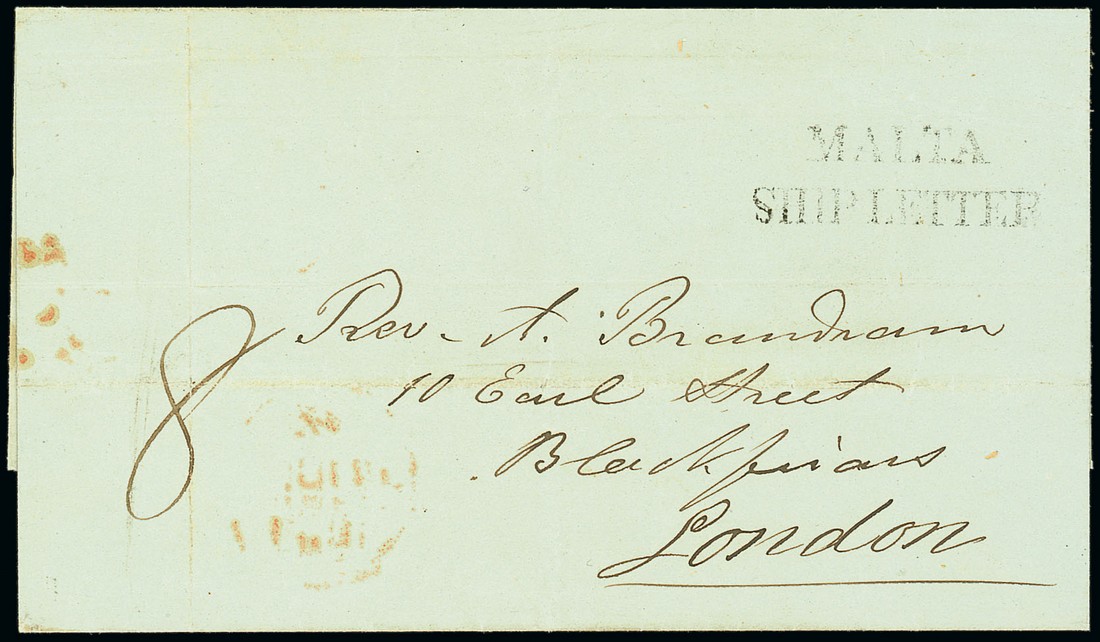 MALTA
SHIP LETTER
8
Rev. A. Brandram
10 Earl Street
Blackfriars
London